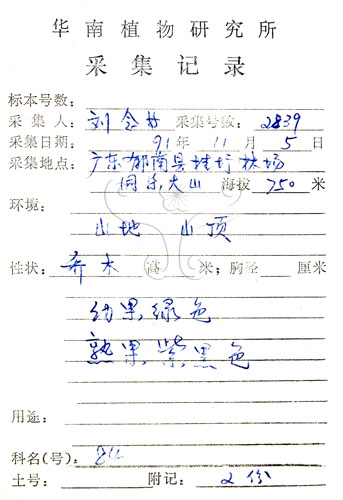 华南植物研究所
采集记录
标本号数:
采集人: 刘念 采集号数: 2839
采集日期: 91年 11月 5日
采集地点: 广东郁南县桂圩林场
同乐大山 海拔 750 米
环境:
山地 山顶
性状: 乔木 高 米; 胸径 厘米
幼果绿色
熟果紫黑色
用途:
科名(号):
土号: 附记: 2份